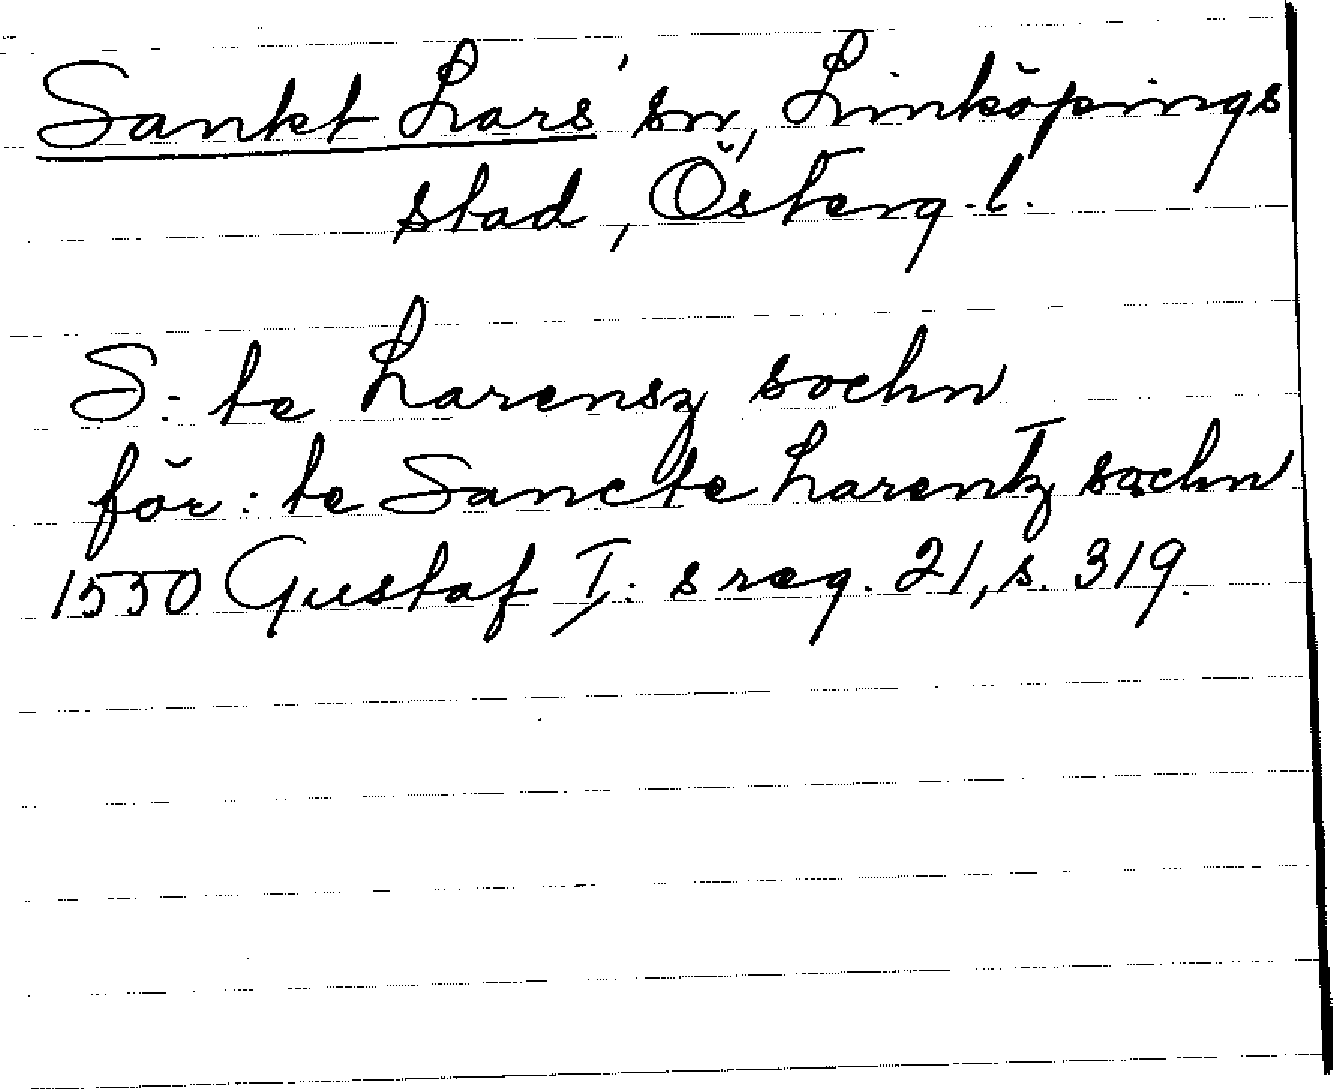 Sankt Lars' sn, Linköpings
stad, Österg.l.
S:te Larensz sochn
för: te Sancte Larentz sochn
1550 Gustaf I:s reg. 21, s. 319.